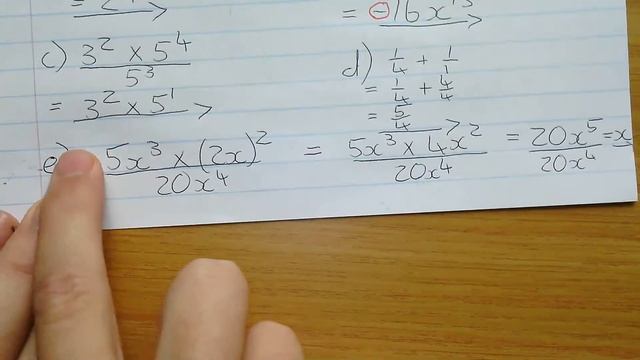 = -16x
c) 3² × 5⁴ / 5³
= 3² × 5¹
d) 1/4 + 1/1
= 1/4 + 4/4
= 5/4
e) 5x³ × (2x)² / 20x⁴ = 5x³ × 4x² / 20x⁴ = 20x⁵ / 20x⁴ = x